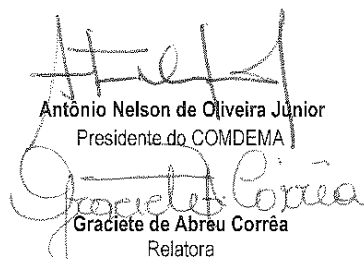 Antônio Nelson de Oliveira Junior
Presidente do COMDEMA
Graciete Corrêa
Graciete de Abreu Corrêa
Relatora